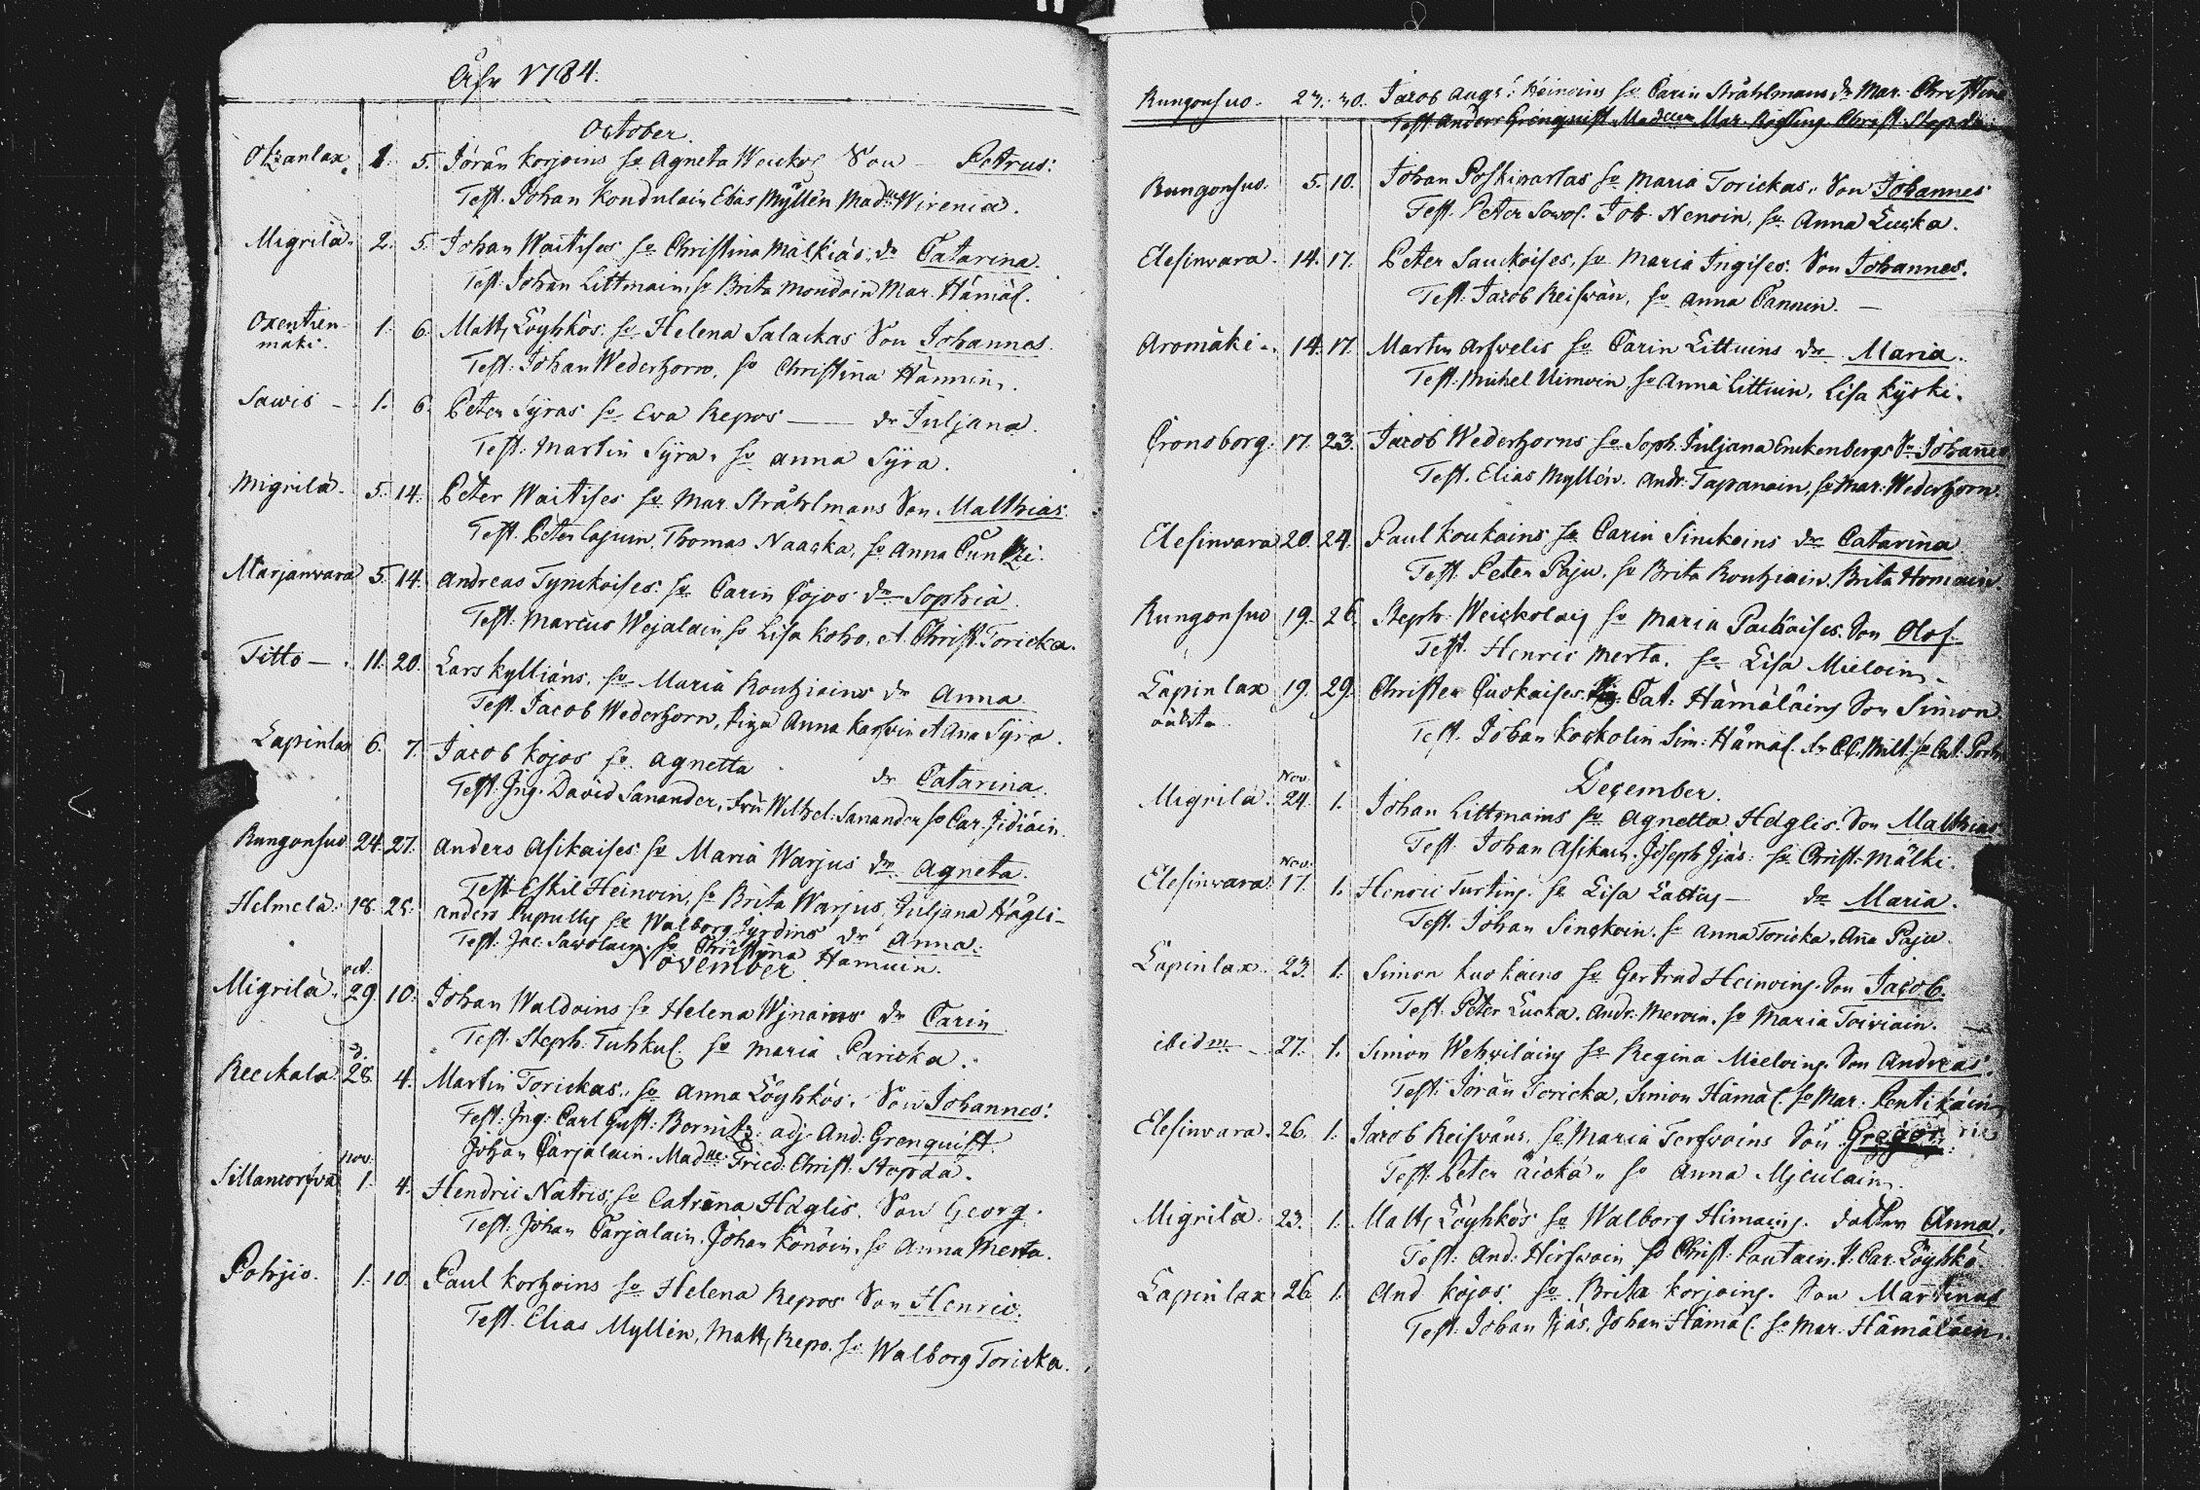 Åhr 1784.
October.
Otzanlax. 1. 5. Jöran Korjoins hu Agneta Weuckos Son Petrus:
Test. Johan Kondulain Elias Myllén Madlle Wirenia.
Migrilä. 2. 5. Johan Waitises hu Christina Mälkiäs, dr Catarina.
Test: Johan Littmain, hu Brita Mondoin Mar. Hämäl.
Oxentien- 1. 6. Matts Löyhkös: hu Helena Salackas Son Johannes.
mäki. Test: Johan Wederhorn, hu Christina Hännin.
Sawis – 1. 6. Peter Syras hu Ewa Repos — dr Juljana.
Test: Martin Syra. hu Anna Syra.
Migrilä. 5. 14. Peter Waitises hu Mar. Stråhlmans Son Matthias.
Test. Peter Lajuin, Thomas Naacka, hu Anna
Marjanwara 5. 14. Andreas Tynckoises. hu Carin Cojos dr Sophia.
Test: Marcus Wejalain, hu Lisa Koho, et Christ. Toricka.
Titto – . 11. 20. Lars Kylliäns, hu Maria Rontziains dr Anna
Test. Jacob Wederhorn, Piga Anna Karhuin et Ana Syra.
Lapinlax 6. 7. Jacob Kojos hu. Agnetta dr Catarina.
Test. Ing. David Sanander, Fru Wilhel. Sanander hu Car. Jidiäin.
Rungonsuo 24. 27. Anders Asikaises hu Maria Warjus dr Agneta.
Test. Eskil Heinoin, hu Brita Warjus, Juljana Hägli-
Helmelä. 18. 28. Anders hu Walborg dr Anna:
Test: Jac. Sawolain. hu Christina Hämuin.
November
oct.
Migrilä. 29. 10. Johan Waldoins hu Helena Wjnains dr Carin
Test. Steph. Tuhkul. hu Maria Paricka.
Reckala. 28. 4. Martin Torickas,, hu Anna Löyhkös. Son Johannes:
Test: Ing. Carl Gust: Bornitz adj. And: Grenquist.
Johan Carjalain. Madlle Fried. Christ. Stopda.
nov.
1. 4. Hendric Natris, hu Catrina Häglis. Son Georg.
Test: Johan Carjalain. Johan Könöin, hu Anna Merta.
Pohjio. 1. 10. Paul Korhoins hu Helena Repos Son Henric.
Test. Elias Myllén, Matts Repo. hu Walborg Toricka.
Rungonsuo. 23. 30. Jacob Augs: Heinoins hu Carin Stråhlmans dr Mar. Christina
Test. Anders Grenquist Madlle Mar. Christ. Stopda.
Rungonsuo. 5. 10. Johan Poskiparlas hu Maria Torickas,, Son Johannes
Test. Peter Sawol. Joh. Nenoin, hu Anna Lucka.
Elesinwara. 14. 17. Peter Sauckoises, hu Maria Ingises. Son Johannes.
Test: Jacob Reiswän, hu Anna Cannin. –
Aromäki – . 14. 17. Martin Arfwelis hu Carin Littuins dr Maria.
Test: Michel Uimoin hu Anna Littuin, Lisa Kyski.
Cronoborg. 17. 23. Jacob Wederhorns hu Soph. Juljana Enckenbergs Sn Johannes
Test. Elias Myllén. Andr. Tapanain, hu Mar: Wederhorn.
Elesinwara 20. 24. Paul Koukains hu Carin Sinckoins dr Catarina
Test. Peter Paju. hu Brita Rontziain, Brita Homain.
Rungonsuo 19. 26. Steph: Weickolais hu Maria Packaises. Son Olof
Test. Henric Merta. hu Lisa Mieloin. –
Lapinlax 19. 29. Christer Cuokaises. Cat: Hämäläins Son Simon
Test. Johan Kockolin Sim: Hämäl.
December.
Nov.
Migrilä. 24. 1. Johan Littmains hu Agnetta Häglis. Son Matthias
Test. Johan Asikain. Joseph Ijäs: hu Christ. Mälki.
Nov.
Elesinwara. 17. 1. Henric Turtins. hu Lisa Lactis – dr Maria.
Test. Johan Sinckoin. hu Anna Toricka, Aña Paju.
Lapinlax. 23. 1. Simon Kuokains hu Gertrud Heinoins. Son Jacob.
Test. Peter Lucka. Andr. Meroin. hu Maria Toiwiain.
ibidm – 27. 1. Simon Wehwiläins hu Regina Mieloins. Son Andreas.
Test: Jöran Toricka, Simon Hämäl. hu Mar. Pentikäin
Elesinwara. 26. 1. Jacob Reiswäns. hu Maria Terfwoins Son Gregorius
Test: Peter Äickä,, hu Anna Mjculain.
Migrilä. 23. 1. Matts Löyhkös hu Walborg Himains. dotter Anna.
Test: And: Hirfwoin hu Christ: Pautain. P. Car. Löyhkö.
Lapinlax. 26. 1. And Kojos. hu Brita Korjoins. Son Martinus
Test: Johan Ijäs, Johan Hämäl. hu Mar: Hämäläin.